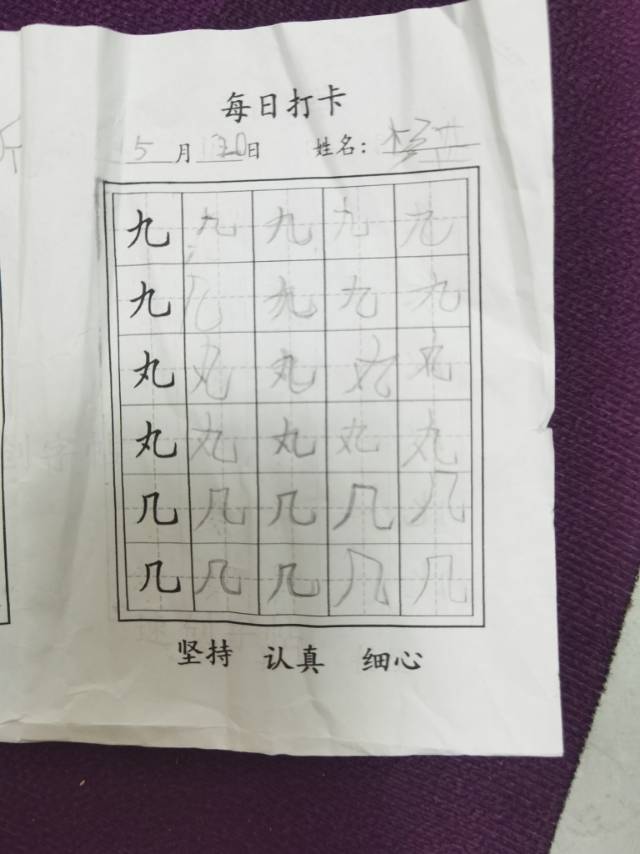 每日打卡
5月20日 姓名：
九九九九九
九九九九九
丸丸丸丸丸
丸丸丸丸丸
几几几几几
几几几几几
坚持 认真 细心